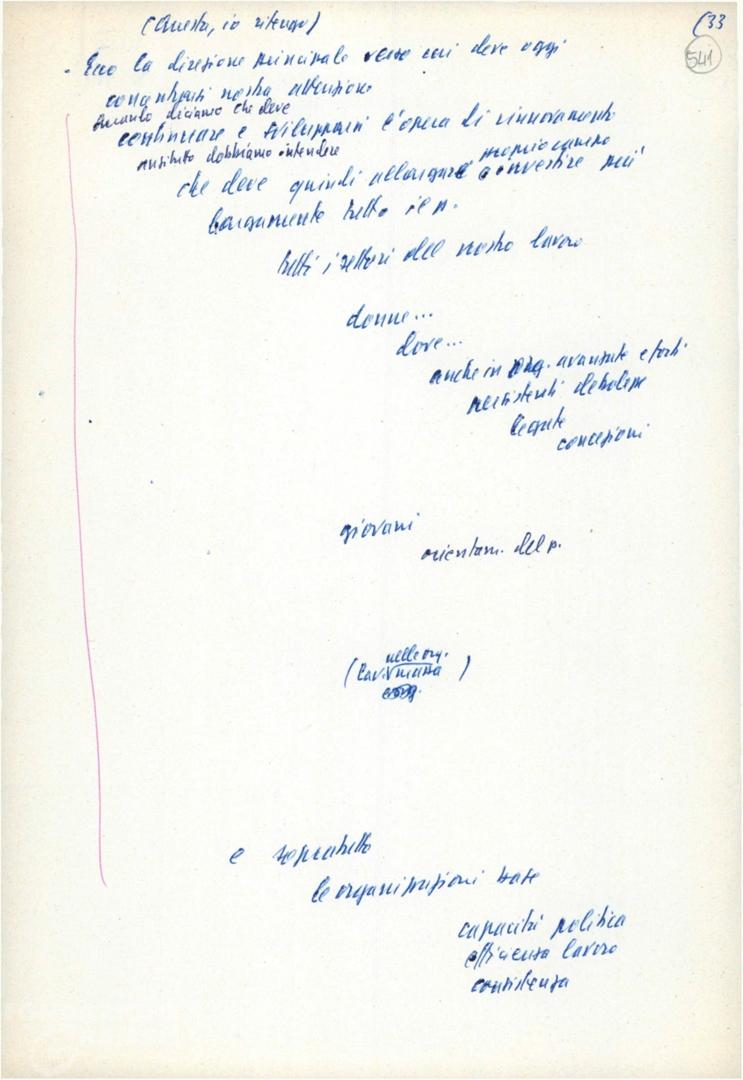 (33
541
(Questa, io ritengo)
- Ecco la direzione principale verso cui deve oggi
concentrarsi nostra attenzione
Quando diciamo che deve
continuare e svilupparsi l'opera di rinnovamento
anzitutto dobbiamo intendere
proprio campo
che deve quindi allargare e investire più
largamente tutto il p.
tutti i settori del nostro lavoro
donne...
dove...
anche in org. avanzate e forti
persistenti debolezze
legate
concezioni
giovani
orientam. del p.
nelle org.
(Lav. V massa)
e sopratutto
le organizzazioni base
capacità politica
efficienza lavoro
consistenza